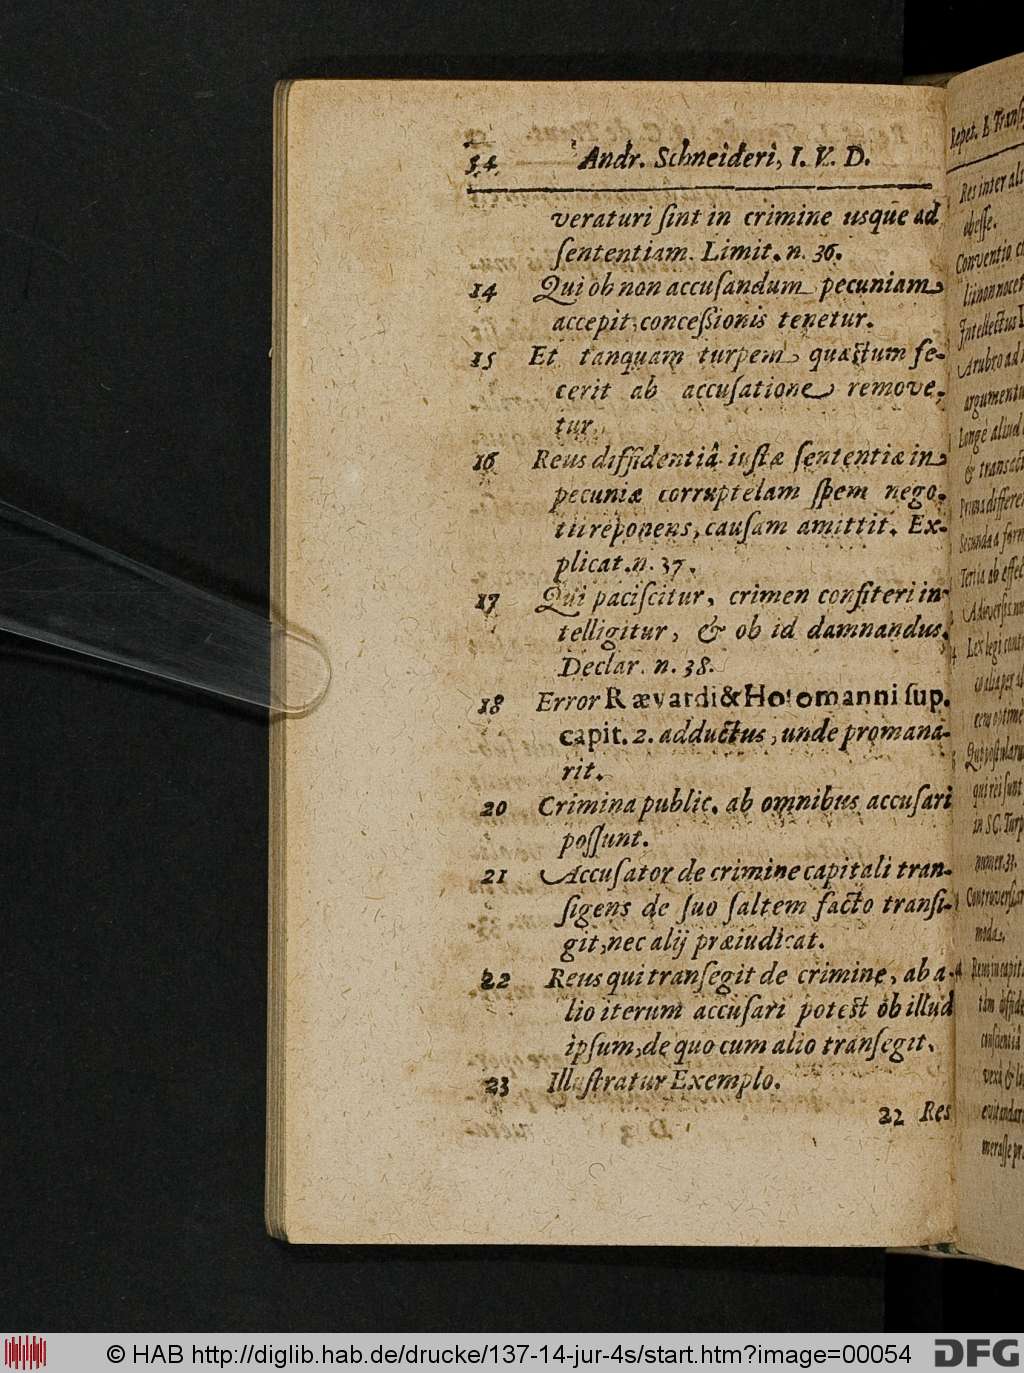 54 Andr. Schneideri, I. V. D.
veraturi ſint in crimine usque ad
ſententiam. Limit. n. 36.
14 Qui ob non accuſandum pecuniam
accepit, conceſsionis tenetur.
15 Et tanquam turpem quæſtum fe-
cerit ab accuſatione remove-
tur.
16 Reus diffidentiâ iuſtæ ſententiæ in
pecuniæ corruptelam ſpem nego-
tii reponens, cauſam amittit. Ex-
plicat. n. 37.
17 Qui paciſcitur, crimen confiteri in-
telligitur, & ob id damnandus.
Declar. n. 38.
18 Error Rævardi & Hotomanni ſup.
capit. 2. adductus, unde promana-
rit.
20 Crimina public. ab omnibus accuſari
poſſunt.
21 Accuſator de crimine capitali tran-
ſigens de ſuo ſaltem facto tranſi-
git, nec alij præiudicat.
22 Reus qui tranſegit de crimine, ab a-
lio iterum accuſari poteſt ob illud
ipſum, de quo cum alio tranſegit.
23 Illuſtratur Exemplo.
22 Res
Repet. L. Tranſ
Res inter ali
obeſſe.
Conventio
lii non nocet
Intellectus
A rubro ad
argument
Longe aliud
& tranſact
Prima differe
Secunda a for
Tertia ab effec
Adverſ
Lex legi cont
Qui poſtularu
qui rei ſunt
in SC. Turp
numer. 33.
Controverſ
moda.
Reus in capit
© HAB http://diglib.hab.de/drucke/137-14-jur-4s/start.htm?image=00054
DFG